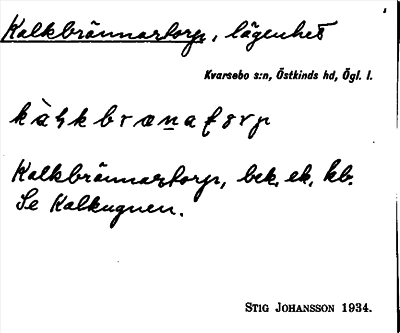 Kalkbrännartorp, lägenhet
Kvarsebo s:n, Östkinds hd, Ögl. l.
Kalkbrännartorp, bek. ek. kb.
Se Kalkugnen.
STIG JOHANSSON 1934.